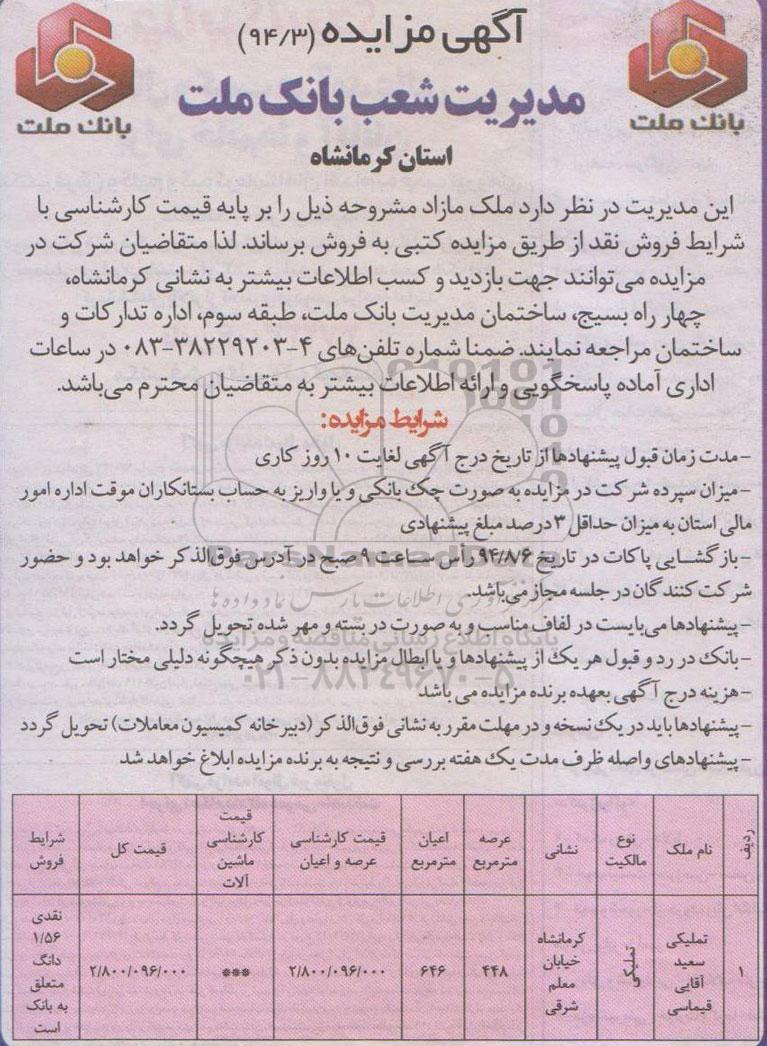 آگهی مزایده (۹۴/۳)
بانک ملت
بانک ملت
مدیریت شعب بانک ملت
استان کرمانشاه
این مدیریت در نظر دارد ملک مازاد مشروحه ذیل را بر پایه قیمت کارشناسی با
شرایط فروش نقد از طریق مزایده کتبی به فروش برساند. لذا متقاضیان شرکت در
مزایده می‌توانند جهت بازدید و کسب اطلاعات بیشتر به نشانی کرمانشاه،
چهار راه بسیج، ساختمان مدیریت بانک ملت، طبقه سوم، اداره تدارکات و
ساختمان مراجعه نمایند. ضمنا شماره تلفن‌های ۴-۳۸۲۲۹۲۰۳-۰۸۳ در ساعات
اداری آماده پاسخگویی و ارائه اطلاعات بیشتر به متقاضیان محترم می‌باشد.
شرایط مزایده:
-مدت زمان قبول پیشنهادها از تاریخ درج آگهی لغایت ۱۰ روز کاری
-میزان سپرده شرکت در مزایده به صورت چک بانکی و یا واریز به حساب بستانکاران موقت اداره امور
مالی استان به میزان حداقل ۳ درصد مبلغ پیشنهادی
-بازگشایی پاکات در تاریخ ۹۴/۸/۶ رأس ساعت ۹ صبح در آدرس فوق‌الذکر خواهد بود و حضور
شرکت کنندگان در جلسه مجاز می‌باشد.
-پیشنهادها می‌بایست در لفاف مناسب و به صورت در بسته و مهر شده تحویل گردد.
-بانک در رد و قبول هر یک از پیشنهادها و یا ابطال مزایده بدون ذکر هیچگونه دلیلی مختار است
-هزینه درج آگهی بعهده برنده مزایده می باشد
-پیشنهادها باید در یک نسخه و در مهلت مقرر به نشانی فوق‌الذکر (دبیرخانه کمیسیون معاملات) تحویل گردد
-پیشنهادهای واصله ظرف مدت یک هفته بررسی و نتیجه به برنده مزایده ابلاغ خواهد شد
ParsNamadData
پایگاه اطلاع رسانی مناقصه و مزایده
۰۲۱-۸۸۳۴۹۶۷۰-۵
ردیف
نام ملک
نوع
مالکیت
نشانی
عرصه
مترمربع
اعیان
مترمربع
قیمت کارشناسی
عرصه و اعیان
قیمت
کارشناسی
ماشین
آلات
قیمت کل
شرایط
فروش
۱
تملیکی
سعید
آقایی
قیماسی
تملیکی
کرمانشاه
خیابان
معلم
شرقی
۴۴۸
۶۴۶
۲/۸۰۰/۰۹۶/۰۰۰
***
۲/۸۰۰/۰۹۶/۰۰۰
نقدی
۱/۵۶
دانگ
متعلق
به بانک
است